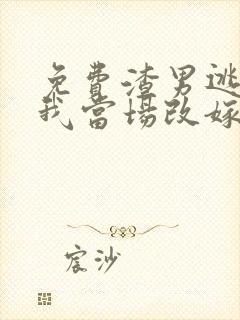 免費渣男逃
我當場改嫁
宸沙